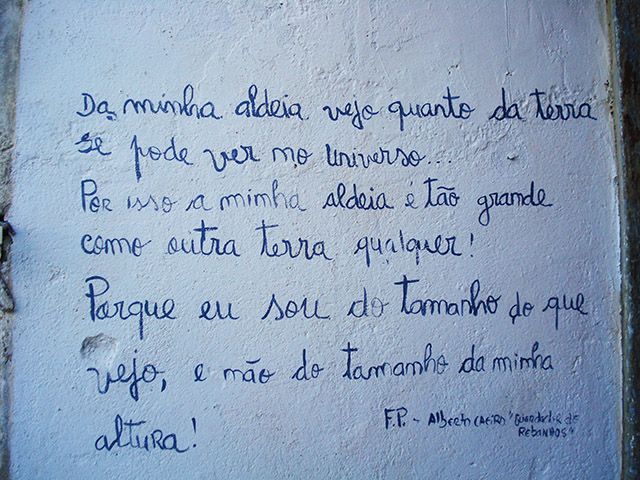 Da minha aldeia vejo quanto da terra
se pode ver no universo...
Por isso a minha aldeia é tão grande
como outra terra qualquer!
Porque eu sou do tamanho do que
vejo, e não do tamanho da minha
altura!
F.P. - Alberto Caeiro "Guardador de
Rebanhos"